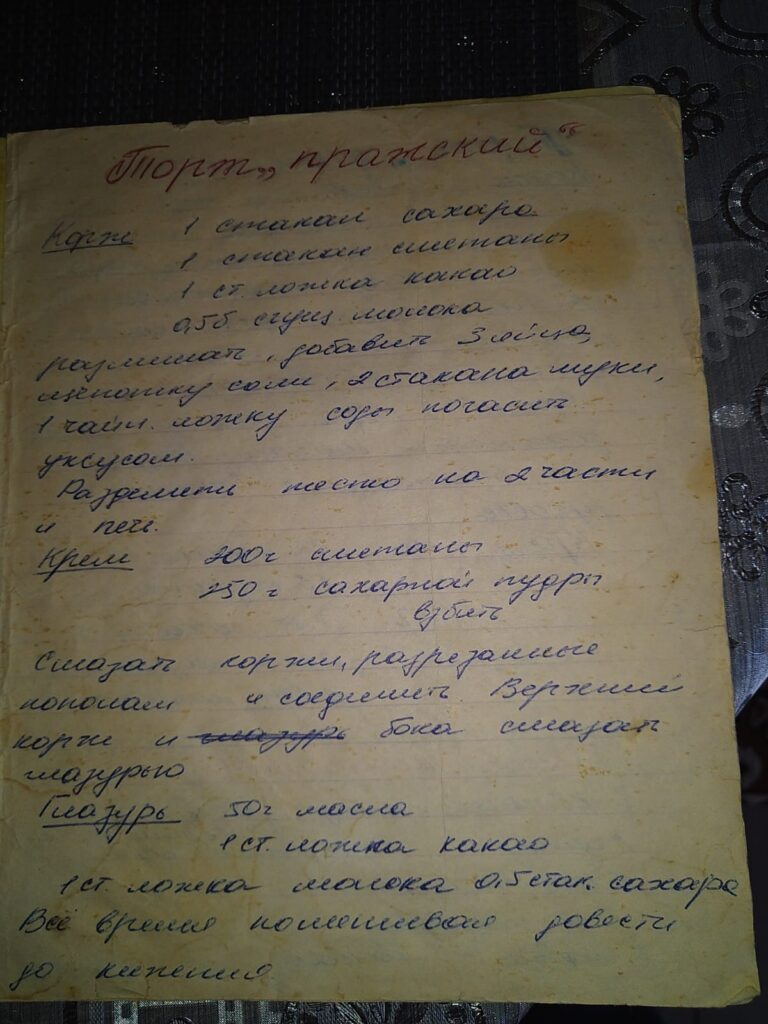 Торт „пражский“
Корж 1 стакан сахара
1 стакан сметаны
1 ст. ложка какао
0,5 б сгущ. молока
размешать, добавить 3 яйца,
щепотку соли, 2 стакана муки,
1 чайн. ложку соды погасить
уксусом.
Разделить тесто на 2 части
и печь.
Крем 200 г сметаны
250 г сахарной пудры
взбить
Смазать коржи, разрезанные
пополам и соединить. Верхний
корж и глазурь бока смазать
глазурью
Глазурь 50 г масла
1 ст. ложка какао
1 ст. ложка молока 0,5 стак. сахара
Всё время помешивая довести
до кипения